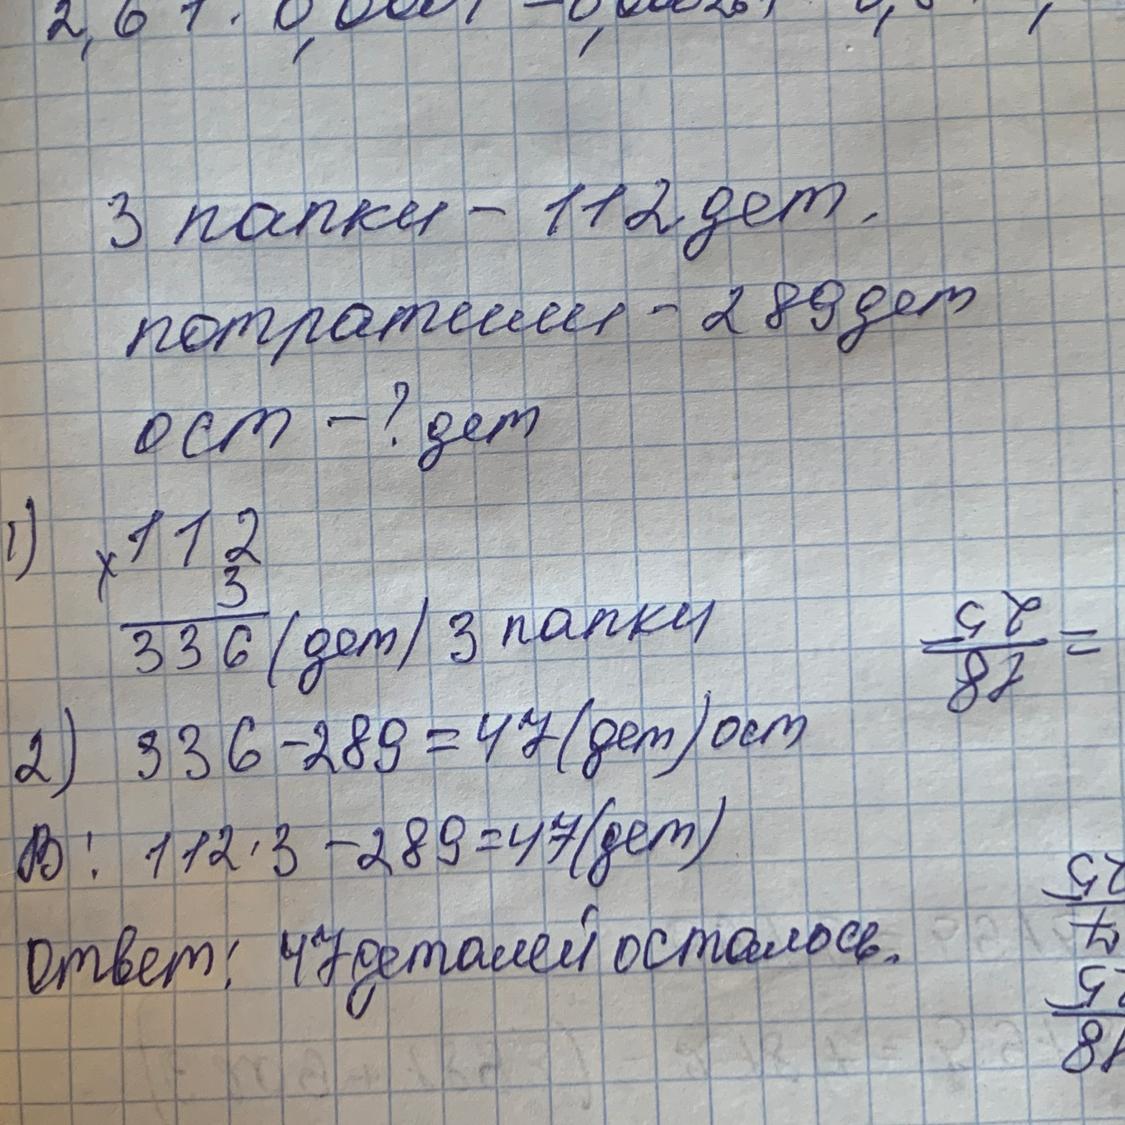 3 папки - 112 дет.
потратили - 289 дет
ост - ? дет
1) x 112
3
336 (дет) 3 папки
2) 336 - 289 = 47 (дет) ост
В: 112 · 3 - 289 = 47 (дет)
Ответ: 47 деталей осталось.
18
25
=
7
25
18
25